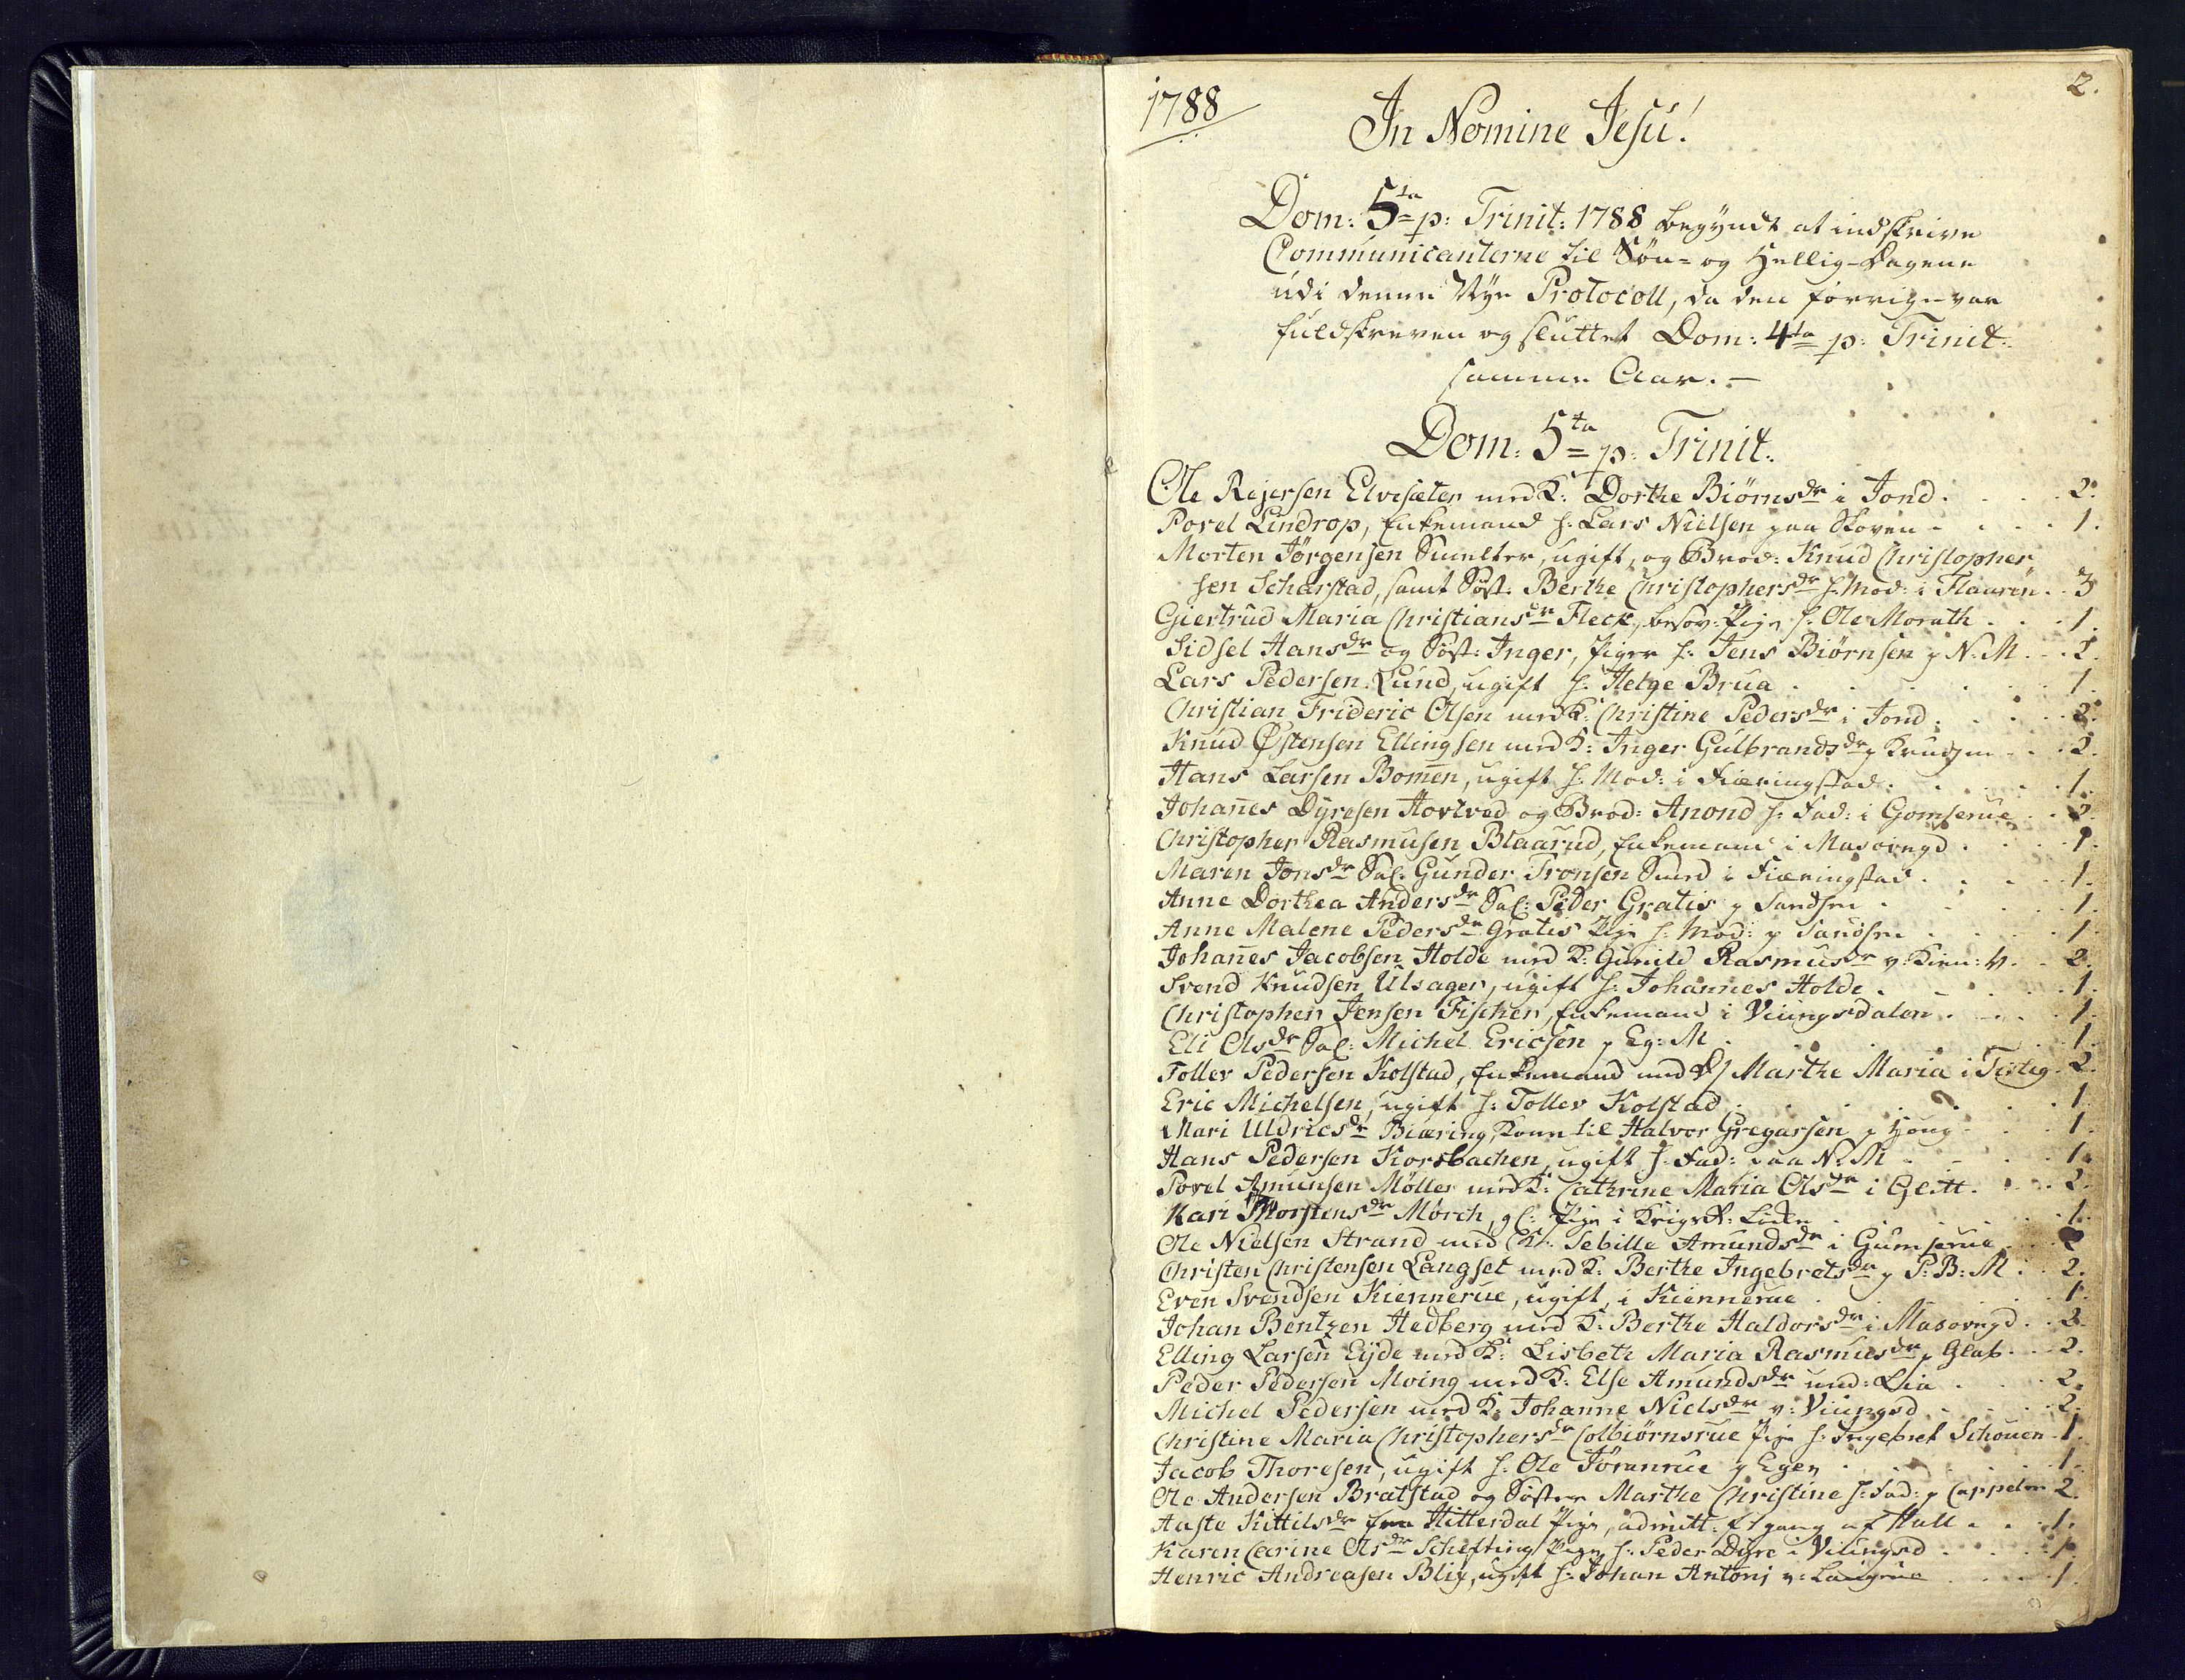 2.
1788
In Nomine Jesu!
Dom: 5ta p: Trinit: 1788 begyndt at indskrive
Communicanterne til Søn- og Hellig-Dagene
udi denne Nye Protocoll, da den forrige var
fuldskreven og sluttet Dom: 4ta p: Trinit:
samme Aar. –
Dom: 5ta p: Trinit:
Ole Rejersen Elvesæter med K: Dorthe Biørnsdr i Jond . . . . 2.
Povel Lindrop, Enkemand h: Lars Nielsen paa Skoven . . . 1.
Morten Jörgensen Smelter, ugift, og Brod: Knud Christopher,
sen Scharstad, samt Søst: Berthe Christophersdr h: Mod: i Flauren . . 3
Giertrud Maria Christiansdr Fleck, besov: Pige h: Ole Morath . . 1.
Sidsel Hansdr og Søst: Inger, Piger h: Jens Biørnsen p N: M . . 2.
Lars Pedersen Lund, ugift h: Helge Brua . . . 1.
Christian Frideric Olsen med K: Christine Pedersdr i Jond . . . 2.
Knud Østensen Ellingsen med K: Inger Gulbrandsdr p . . 2.
Hans Larsen Bomen, ugift h: Mod: i Fiæringstad . . . 1.
Johanes Dyresen Hovlved og Brod: Anond h: Fad: i Gomserue . . 2.
Christopher Rasmusen Blaarud, Enkemand i Masovngd . . . 1.
Maren Jonsdr Sal: Gunder Tronsen Smed i Fiæringstad . . . 1.
Anne Dorthea Andersdr Sal: Peder Gratis p Sandsn . . . 1.
Anne Malene Pedersdr Gratis Pige h: Mod: p Sandsn . . . 1.
Johanes Jacobsen Holde med K: Gunild Rasmusdr v: Kien: V. . 2.
Svend Knudsen Ulsager, ugift h: Johannes Holde . . . 1.
Christopher Jensen Fischer, Enkemand i Viungsdalen . . . 1.
Eli Olsdr Sal: Michel Ericsen p Eg: M . . . 1.
Tollev Pedersen Kolstad, Enkemand med D/ Marthe Maria i Tisleg . 2.
Eric Michelsen, ugift h: Tollev Kolstad . . . 1.
Mari Uldricsdr Biæring, Kone til Halvor Gregarsen p Houg . . 1.
Hans Pedersen Korsbachen, ugift h: Fad: paa N: M . . . 1.
Povel Amunsen Møller med K: Cathrine Maria Olsdr i Glitt . . . 2.
Kari Thorstensdr Mørch, gl: Pige i . . . 1.
Ole Nielsen Strand med K: Sebille Amundsdr i Gumserue . . 2
Christen Christensen Langset med K: Berthe Ingebretsdr p P: B: M . . 2.
Even Svendsen Kiennerue, ugift, i Kiennerue . . . 1.
Johan Bentzen Hedberg med K: Berthe Haldorsdr i Masovngd . . 2.
Elling Larsen Eyde med K: Lisbeth Maria Rasmusdr p Glab . . 2.
Peder Pedersen Moing med K: Else Amundsdr und: Lia . . . 2.
Michel Pedersen med K: Johanne Nielsdr v: Viungsd . . . 2.
Christine Maria Christophersdr Colbiørnsrue Pige h: Ingebret Schouen . 1.
Jacob Thoresen, ugift h: Ole Joranrue p Egen . . . 1.
Ole Andersen Bratstad og Søster Marthe Christine h: Fad: p Cappelen 2.
Aaste Kittilsdr fra Hitterdal Pige, admitt: f: gang af Hall . . 1.
Karen Carine Olsdr Schefting Pige h: Peder Dyre i Viungsd . . . 1.
Henric Andreasen Blix, ugift h: Johan Antonj v: Langrue . . . 1.